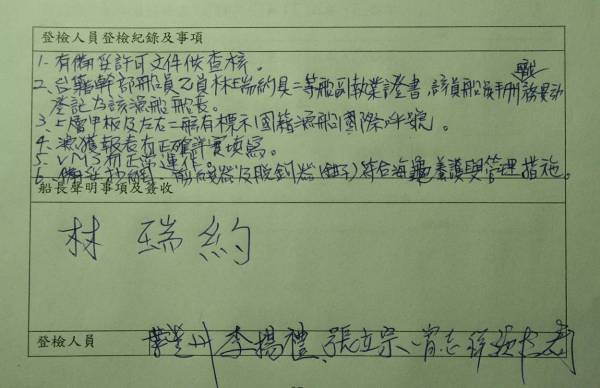 登檢人員登檢紀錄及事項
1. 有備妥許可文件供查核。
2. 台籍幹部船員乙員林瑞約具二等船副執業證書，該員船員手冊職務異動
登記為該漁船船長。
3. 上層甲板及左右二舷有標示國籍漁船國際呼號。
4. 漁獲報表有正確詳實填寫。
5. VMS有正常運作。
6. 備妥抄網、剪線器及脫鉤器(鉗子)符合海龜養護與管理措施。
船長聲明事項及簽收
林瑞約
登檢人員 李揚禮、張立宗、